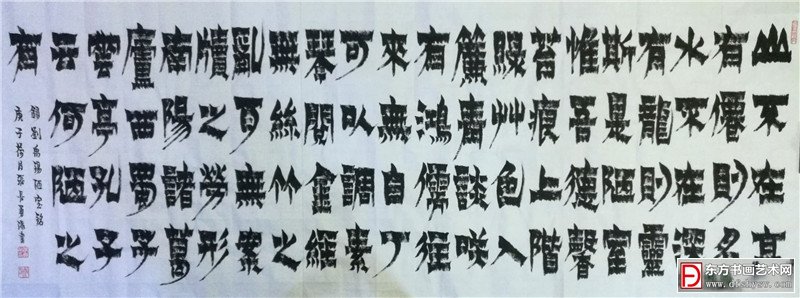 山不在高
有僊則名
水不在深
有龍則靈
斯是陋室
惟吾德馨
苔痕上階
綠艸色入
簾青談咲
有鴻儒往
來無白丁
可以調素
琴閱金經
無絲竹之
亂耳無案
牘之勞形
南陽諸葛
廬西蜀子
雲亭孔子
云何陋之
有
錄劉禹錫陋室銘
庚子荷月張長
东方书画艺术网
www.dfshysw.com